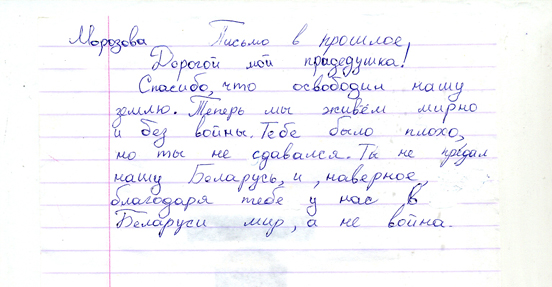 Морозова Письмо в прошлое,
Дорогой мой прадедушка!
Спасибо, что освободил нашу
землю. Теперь мы живём мирно
и без войны. Тебе было плохо,
но ты не сдавался. Ты не предал
нашу Беларусь, и, наверное,
благодаря тебе у нас в
Беларуси мир, а не война.